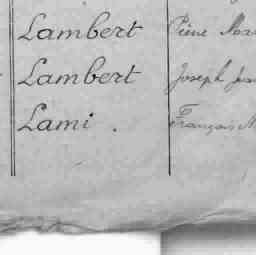 Lambert Pierre
Lambert Joseph
Lami. François M